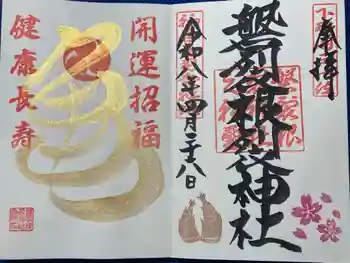 奉拝
磐裂根裂神社
令和八年四月二十八日
開運招福
健康長寿